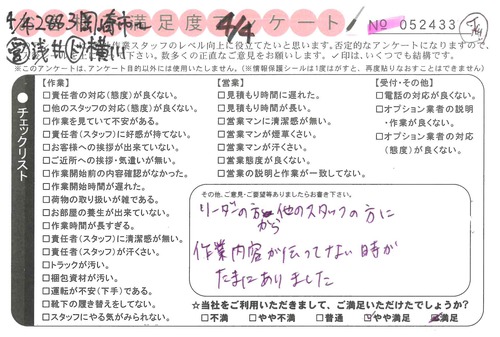 4/4 2883 岡崎市 満足度アンケート 4/4
№ 052433
浅井 横
作業スタッフのレベル向上に役立てたいと思います。否定的なアンケートになりますので、
数多くの正直なご意見をお願いします。✓印は、いくつでも結構です。
※このアンケートは、アンケート目的以外には使用いたしません。(※情報保護シールは1度はがすと、再度貼りなおすことはできません)
チェックリスト
【作業】
□責任者の対応(態度)が良くない。
□他のスタッフの対応(態度)が良くない。
□作業を見ていて不安がある。
□責任者(スタッフ)に好感が持てない。
□お客様への挨拶が出来ていない。
□ご近所への挨拶・気遣いが無い。
□作業開始前の内容確認がなかった。
□作業開始時間が遅れた。
□荷物の取り扱いが雑である。
□お部屋の養生が出来ていない。
□作業時間が長すぎる。
□責任者(スタッフ)に清潔感が無い。
□責任者(スタッフ)が汗くさい。
□トラックが汚い。
□梱包資材が汚い。
□運転が不安(下手)である。
□靴下の履き替えをしてない。
□スタッフにやる気がみられない。
【営業】
□見積もり時間に遅れた。
□見積もり時間が長い。
□営業マンに清潔感が無い。
□営業マンが煙草くさい。
□営業マンが汗くさい。
□営業態度が良くない。
□営業の説明と作業が一致してない。
【受付・その他】
□電話の対応が良くない。
□オプション業者の説明
・作業が良くない。
□オプション業者の対応
(態度)が良くない。
その他、ご意見・ご要望等ありましたらお書き下さい。
リーダーの方から他のスタッフの方に
作業内容が伝ってない時が
たまにありました
☆当社をご利用いただきまして、ご満足いただけたでしょうか?
□不満 □やや不満 □普通 □やや満足 □満足